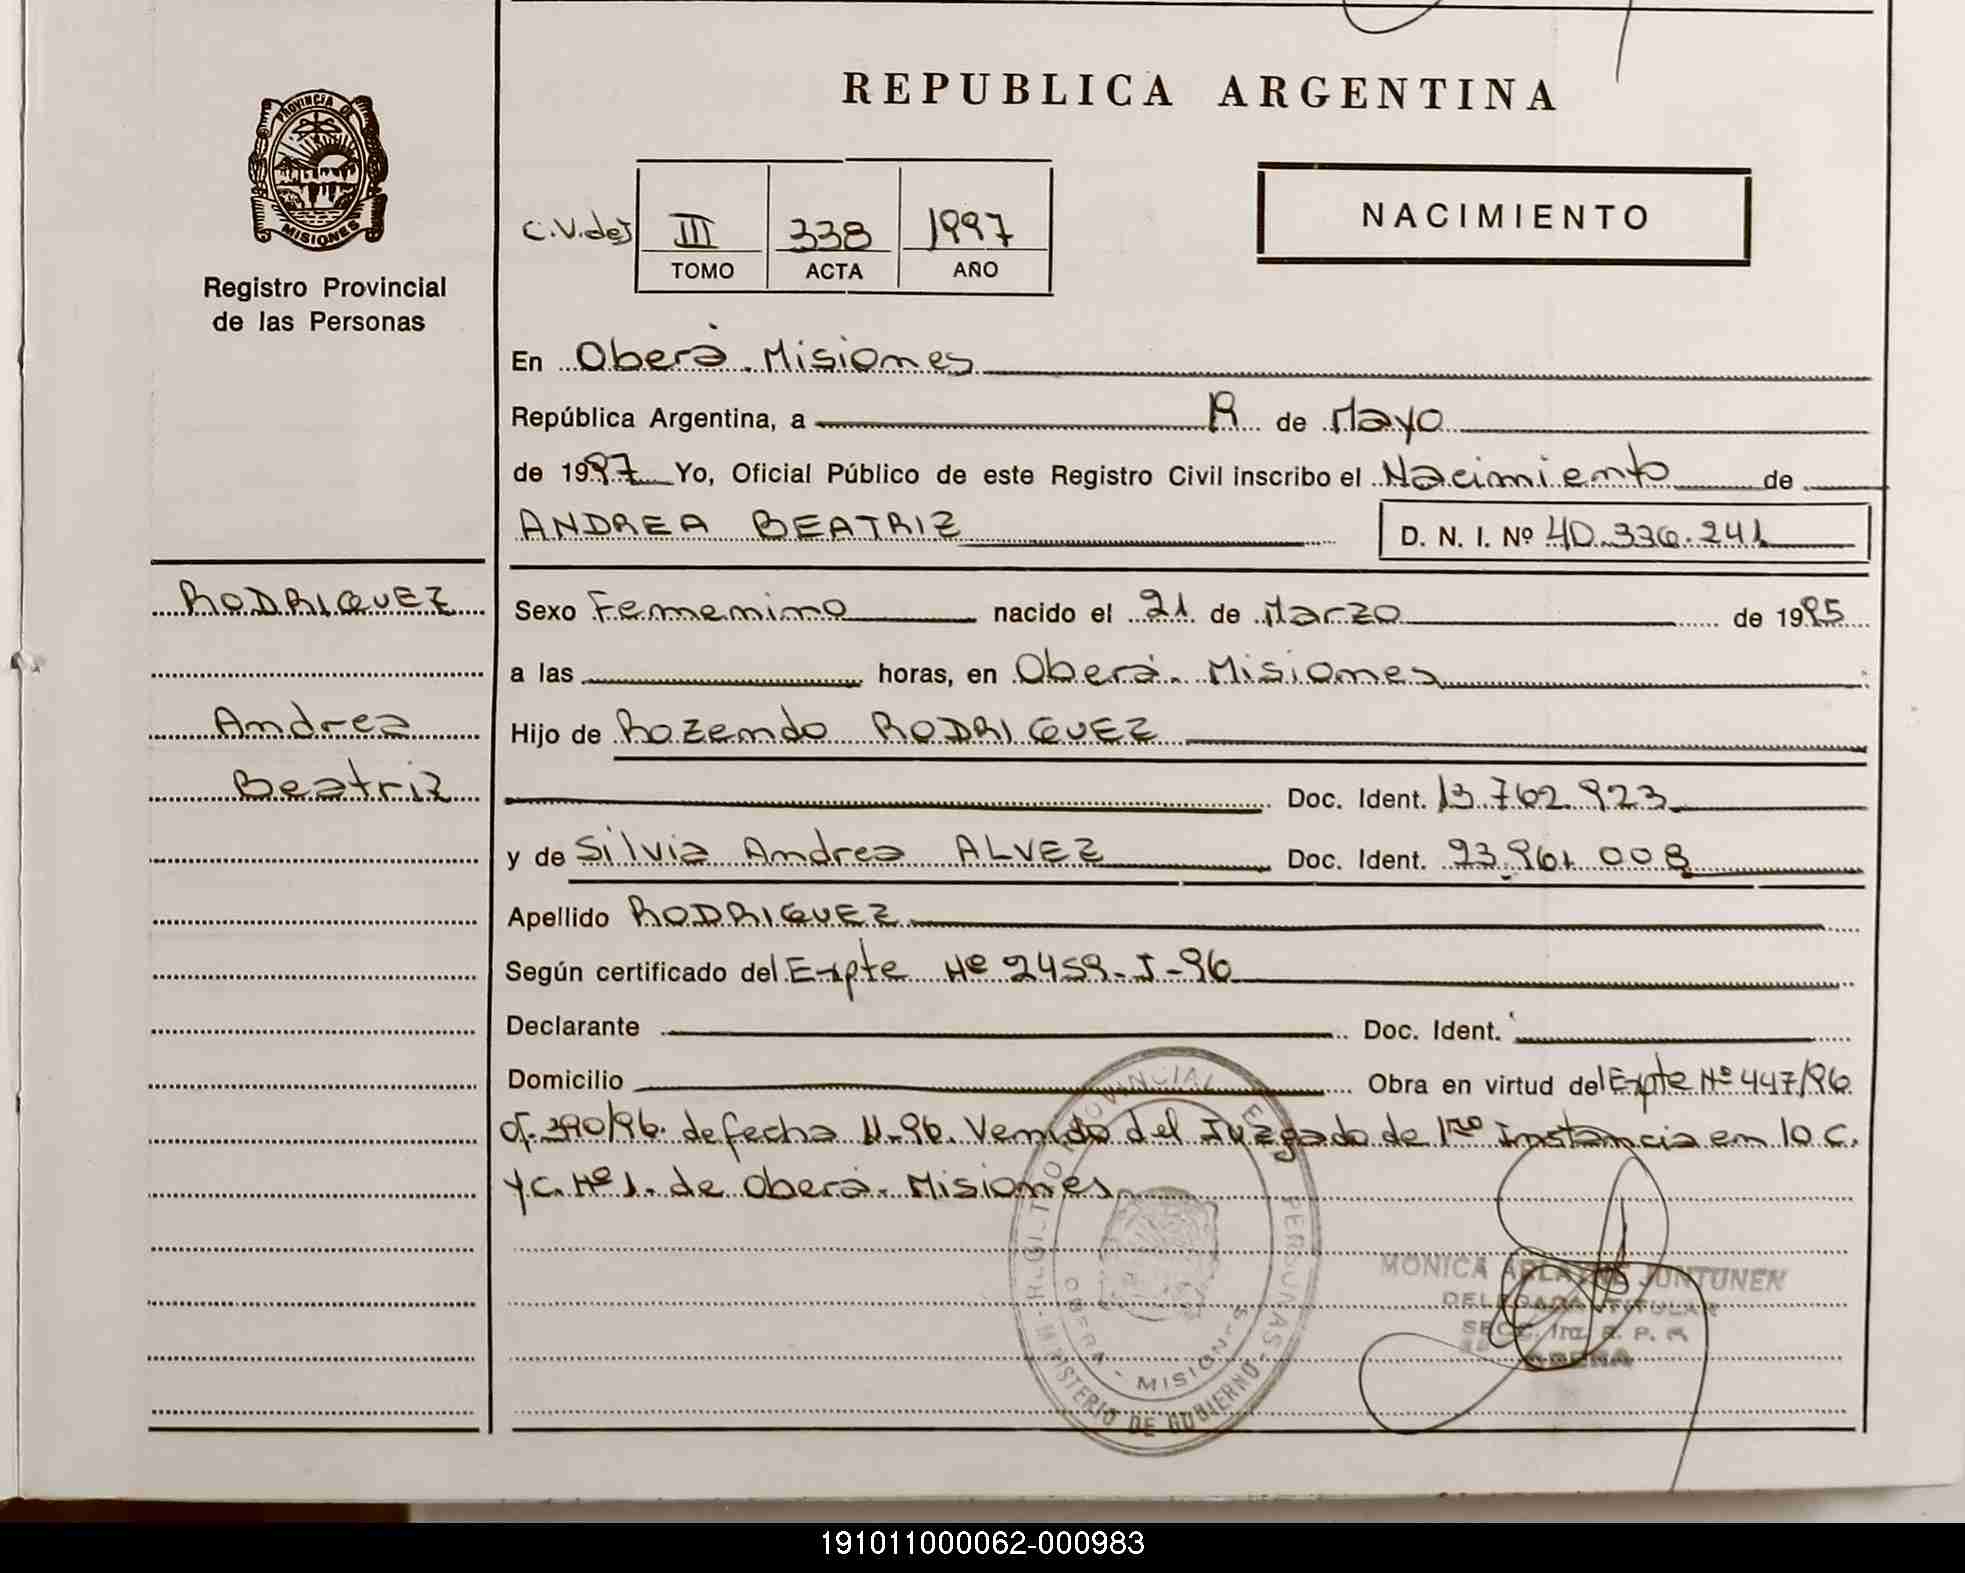 REPUBLICA ARGENTINA
PROVINCIA DE
MISIONES
Registro Provincial
de las Personas
C.V.deJ III 338 1997
TOMO ACTA AÑO
NACIMIENTO
En Oberá. Misiones
República Argentina, a de Mayo
de 1997 Yo, Oficial Público de este Registro Civil inscribo el Nacimiento de
ANDREA BEATRIZ D. N. I. Nº 40.336.241
RODRIGUEZ
Andrea
Beatriz
Sexo Femenino nacido el 21 de Marzo de 1995
a las horas, en Oberá. Misiones
Hijo de Rozendo RODRIGUEZ
Doc. Ident. 13.762.923
y de Silvia Andrea ALVEZ Doc. Ident. 93.961.008
Apellido RODRIGUEZ
Según certificado del Expte Nº 2459-J-96
Declarante Doc. Ident.
Domicilio Obra en virtud del Expte Nº 447/96
of. 390/96. de fecha 11-96. Venido del Juzgado de 1ra Instancia en lo C.
y C. Nº 1. de Oberá. Misiones
REGISTRO PROVINCIAL PERSONAS
MINISTERIO DE GOBIERNO
OBERA - MISIONES
MONICA JUNTUNEN
DELEGADA TITULAR
SECC. R. P. P.
OBERA
191011000062-000983